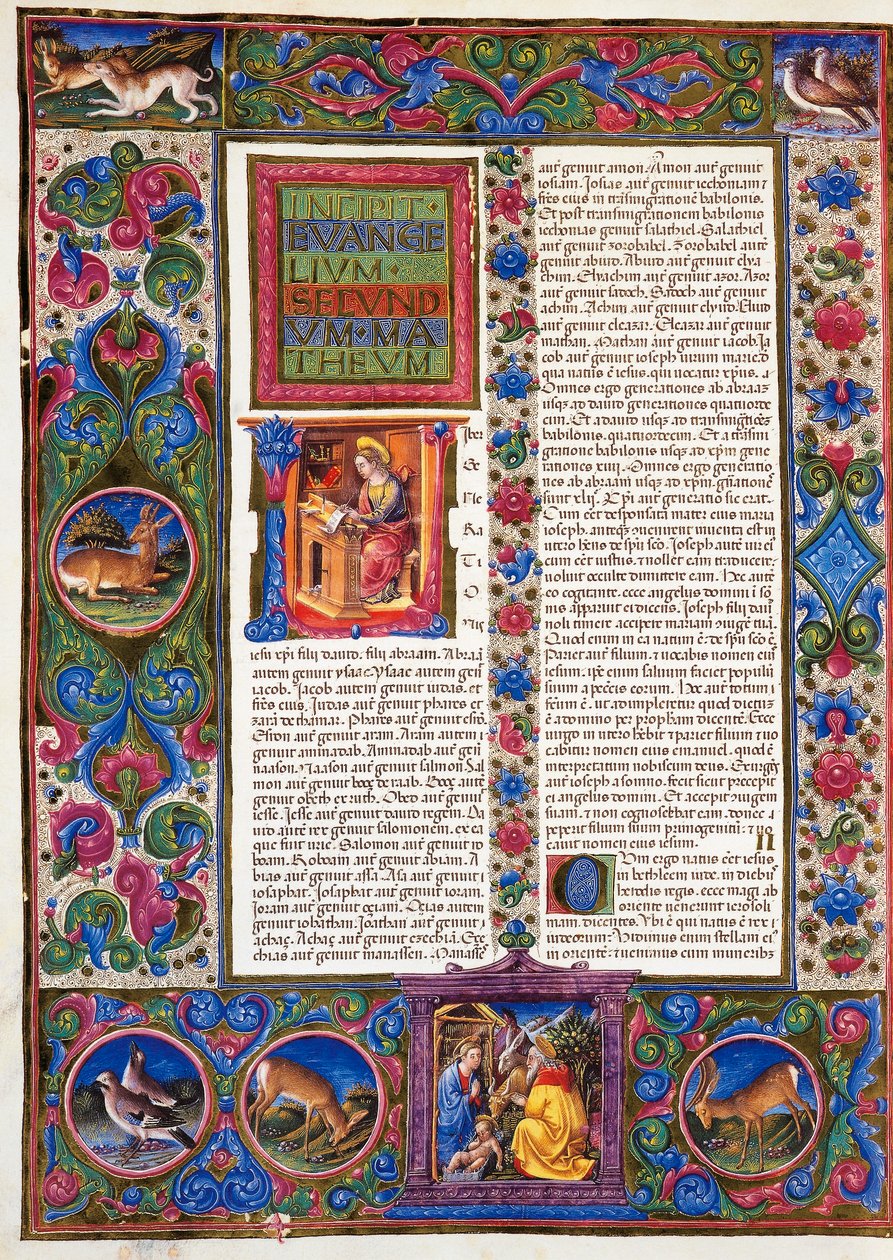 INCIPIT·
EVANGE
LIVM·
SECVND
VM·MA
THEVM
Liber
Ge
Ne
Ra
Ti
O
Nis
iesu xp̄i filii dauid. filii abraam. Abraā
autem genuit ysaac. Ysaac autem genͥ
iacob. Iacob autem genuit iudas. et
fr̄es eius. Iudas aut̄ genuit phares et
zarā de thamar. Phares aut̄ genuit esrō.
Esron aut̄ genuit aram. Aram autem
genuit aminadab. Aminadab aut̄ genͥ
naason. Naason aut̄ genuit salmon. Sal
mon aut̄ genuit booç de raab. Booç autē
genuit obeth ex ruth. Obed aut̄ genuͥ
iesse. Iesse aut̄ genuit dauid regem. Da
uid aūte rex genuit salomonem. ex ea
que fuit urie. Salomon aut̄ genuit ro
boam. Roboam aut̄ genuit abiam. A
bias aut̄ genuit assa. Asa aut̄ genuit
iosaphat. Iosaphat aut̄ genuit ioram.
Ioram aut̄ genuit oçiam. Oçias autem
genuit iohathan. Ioathan aut̄ genuit
achaç. Achaç aut̄ genuit eçechiā. Eçe
chias aut̄ genuit manassen. Manasses
aut̄ genuit amon. Amon aut̄ genuit
iosiam. Iosias aut̄ genuit iechoniam ⁊
fr̄es eius in trāsmigrationē babilonis.
Et post transmigrationem babilonis
iechonias genuit salathiel. Salathiel
aut̄ genuit zorobabel. Zorobabel autē
genuit abiud. Abiud aut̄ genuit elya
chim. Elyachim aut̄ genuit azor. Azor
aut̄ genuit sadoch. Sadoch aut̄ genuit
achim. Achim aut̄ genuit elyud. Eliud
aut̄ genuit eleazar. Eleazar aut̄ genuit
mathan. Mathan aut̄ genuit iacob. Ia
cob aut̄ genuit ioseph uirum marie. d
qua natus ē iesus. qui uocatur xp̄us.
Omnes ergo generationes ab abraaz
usqꝫ ad dauid generationes quatuorde
cim. Et a dauid usqꝫ ad transmigrationēz
babilonis. quatuordecim. Et a trāsmi
gratione babilonis usqꝫ ad xp̄m gene
rationes xiiii. Omnes ergo generatio
nes ab abraam usqꝫ ad xp̄m. gn̄ationes
sunt xlij. Xp̄i aut̄ generatio sic erat.
Cum eēt desponsata mater eius maria
ioseph. anteqꝫ uenirent inuenta est in
utero hn̄s de sp̄u sc̄o. Ioseph autē uir eiꝰ
cum eēt iustus. ⁊ nollet eam traducere.
uoluit occulte dimittere eam. Hec autē
eo cogitante. ecce angelus domini ī sō
nis apparuit ei dicens. Ioseph filij dauͥ
noli timere accipere mariam ↄiugem tuā.
Quod enim in ea natum ē. de sp̄u sc̄o ē.
Pariet aut̄ filium. ⁊ uocabis nomen eiꝰ
iesum. ip̄e enim saluum faciet populū
suum a pecc̄is eorum. Hoc aut̄ totum
fc̄um ē. ut adimpleretur quod dictuz
ē a domino per prop̄ham dicentē. Ecce
uirgo in utero h̄ebit ⁊ pariet filium ⁊ uo
cabitur nomen eius emanuel. quod ē
interpretatum nobiscum deus. Exurgēs
aut̄ ioseph a somno. fecit sicut precepit
ei angelus domini. Et accepit ↄiugem
suam. ⁊ non cognoscebat eam. donec
peperit filium suum primogenitū. ⁊ uo
cauit nomen eius iesum. II
CVm ergo natus eēt iesus
in bethleem iude. in diebus
herodis regis. ecce magi ab
oriente uenerunt ierosoli
mam. dicentes. Vbi ē qui natus ē rex
iudeorum. Vidimus enim stellam eiꝰ
in oriente. ⁊ uenimus cum muneribꝫ